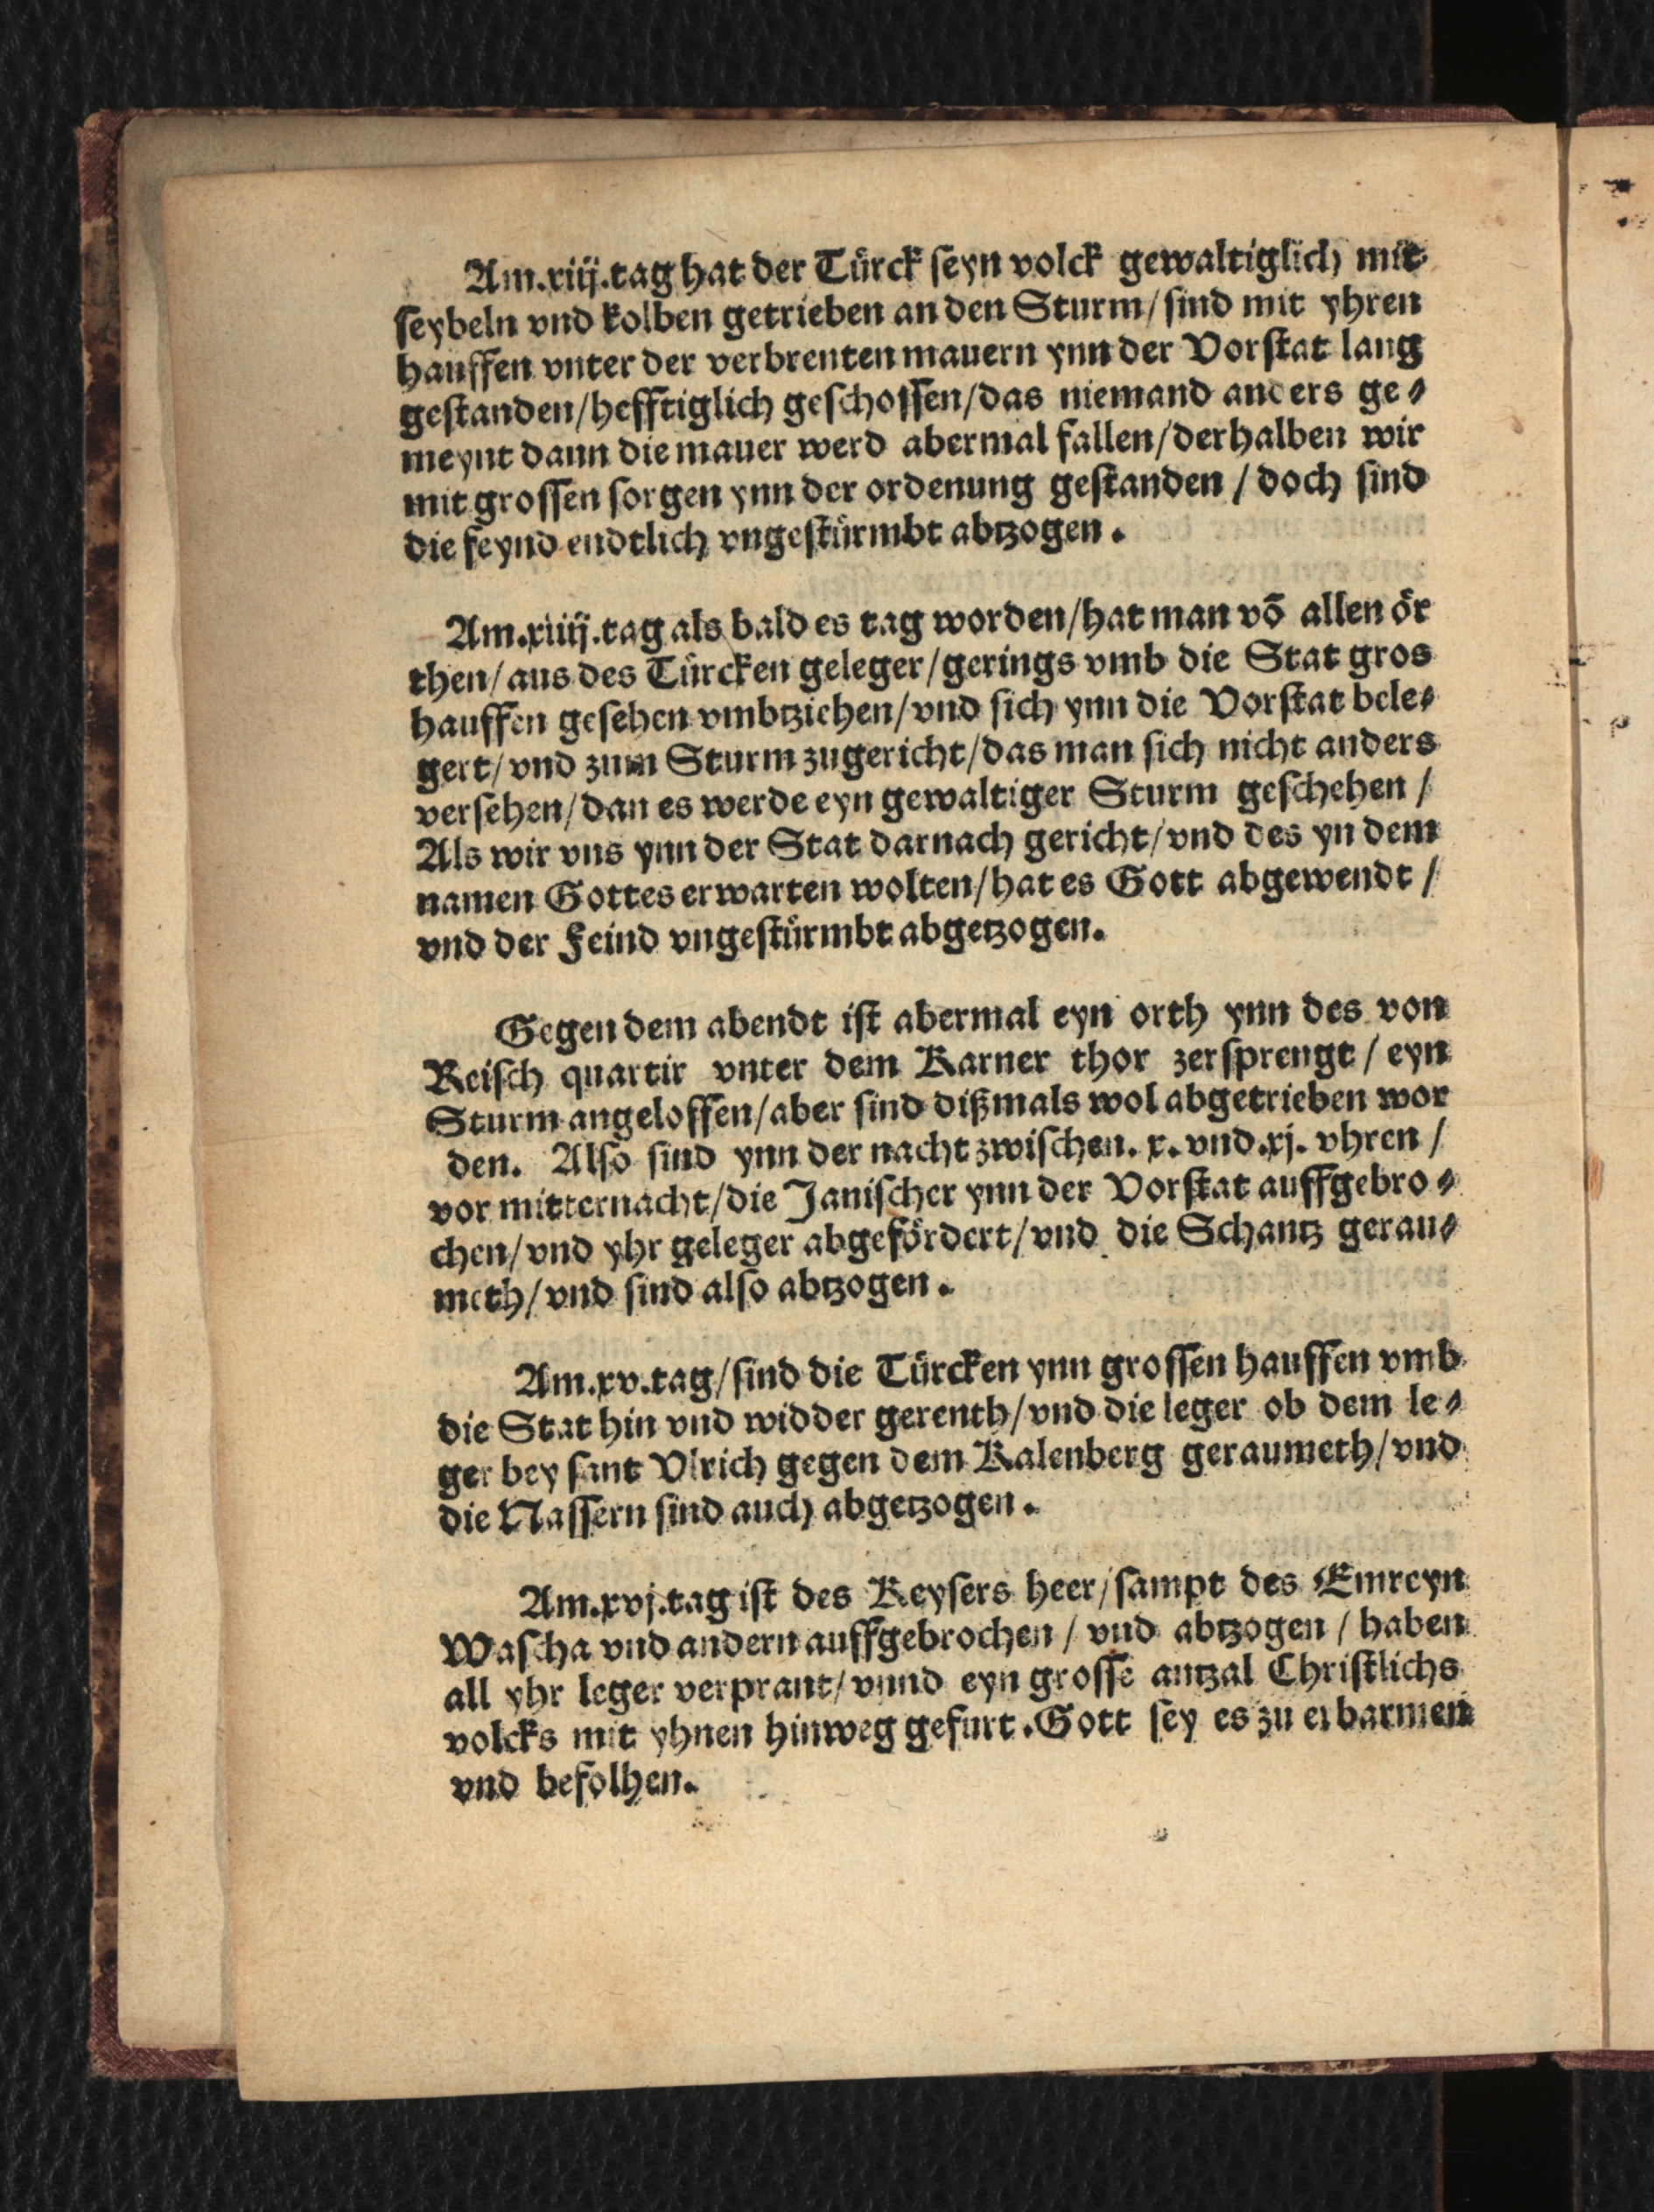 Am.xiij.tag hat der Tuͤrck ſeyn volck gewaltiglich mit
ſeybeln vnd kolben getrieben an den Sturm/ſind mit yhren
hauffen vnter der verbrenten mauern ynn der Vorſtat lang
geſtanden/hefftiglich geſchoſſen/das niemand anders ge⸗
meynt dann die mauer werd abermal fallen/derhalben wir
mit groſſen ſorgen ynn der ordenung geſtanden / doch ſind
die feynd endtlich vngeſtuͤrmbt abtzogen.
Am.xiiij.tag als bald es tag worden/hat man võ allen oͤr
then/aus des Tuͤrcken geleger/gerings vmb die Stat gros
hauffen geſehen vmbtziehen/vnd ſich ynn die Vorſtat bele⸗
gert/vnd zum Sturm zugericht/das man ſich nicht anders
verſehen/dan es werde eyn gewaltiger Sturm geſchehen /
Als wir vns ynn der Stat darnach gericht/vnd des yn dem
namen Gottes erwarten wolten/hat es Gott abgewendt /
vnd der Feind vngeſtuͤrmbt abgetzogen.
Gegen dem abendt iſt abermal eyn orth ynn des von
Reiſch quartir vnter dem Karner thor zerſprengt / eyn
Sturm angeloffen/aber ſind dißmals wol abgetrieben wor
den. Alſo ſind ynn der nacht zwiſchen. x. vnd.xj. vhren /
vor mitternacht/die Janiſcher ynn der Vorſtat auffgebro⸗
chen/vnd yhr geleger abgefoͤrdert/vnd die Schantz gerau⸗
meth/vnd ſind alſo abtzogen.
Am.xv.tag/ſind die Tuͤrcken ynn groſſen hauffen vmb
die Stat hin vnd widder gerenth/vnd die leger ob dem le⸗
ger bey ſant Vlrich gegen dem Kalenberg geraumeth/vnd
die Naſſern ſind auch abgetzogen.
Am.xvj.tag iſt des Keyſers heer/ſampt des Emreyn
Waſcha vnd andern auffgebrochen / vnd abtzogen / haben
all yhr leger verprant/vnnd eyn groſſe antzal Chriſtlichs
volcks mit yhnen hinweg gefurt.Gott ſey es zu erbarmen
vnd befolhen.